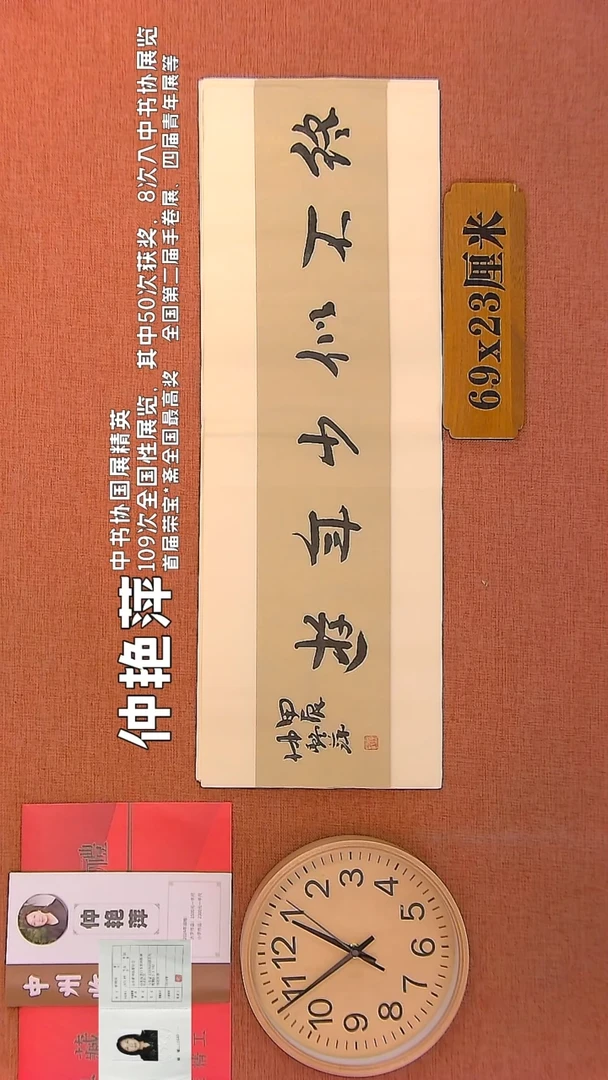 仲艳萍
中书协国展精英
109次全国性展览，其中50次获奖，8次入中书协展览
首届荣宝*斋全国最高奖 全国第二届手卷展、四届青年展等
终不似少年游
甲辰
仲艳萍
69x23厘米
仲艳萍
中州
藏
12
1
2
3
4
5
6
7
8
9
10
11